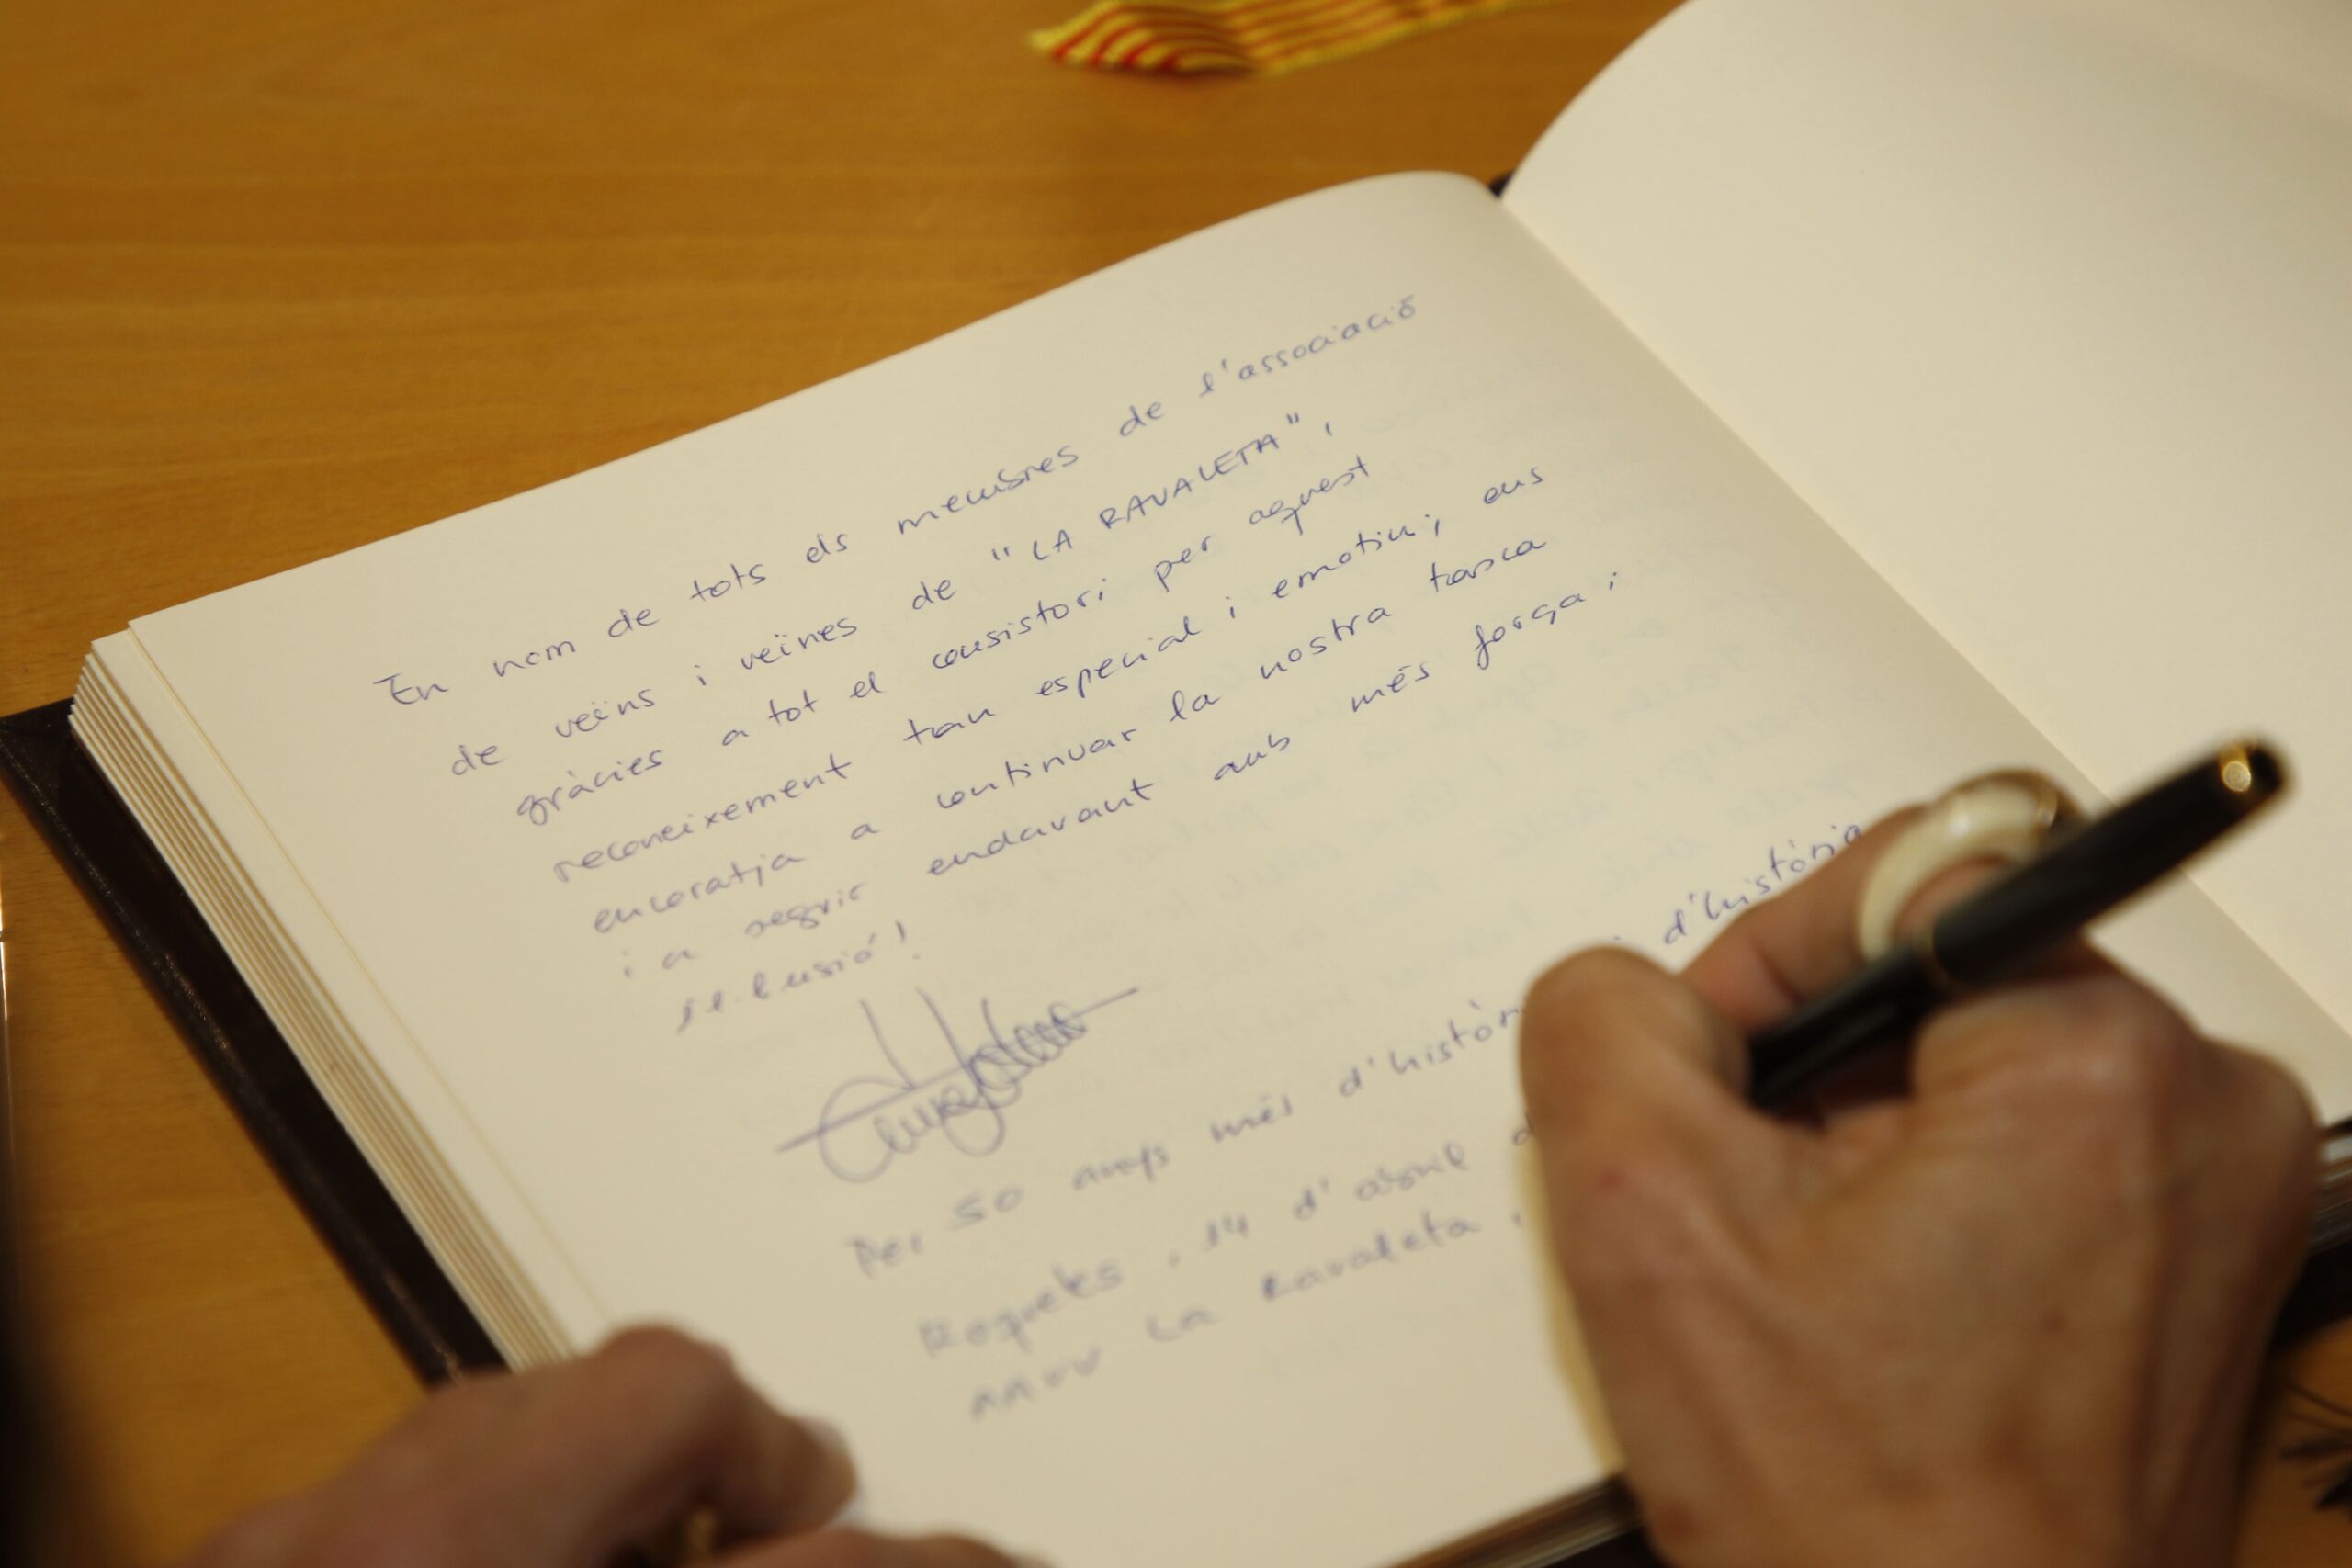 En nom de tots els membres de l'associació
de veïns i veïnes de "LA RAVALETA",
gràcies a tot el consistori per aquest
reconeixement tan especial i emotiu; ens
encoratja a continuar la nostra tasca
i a seguir endavant amb més força i
il·lusió!
Per 50 anys més d'històri d'història
Roquetes, 14 d'abril d
AAVV La Ravaleta